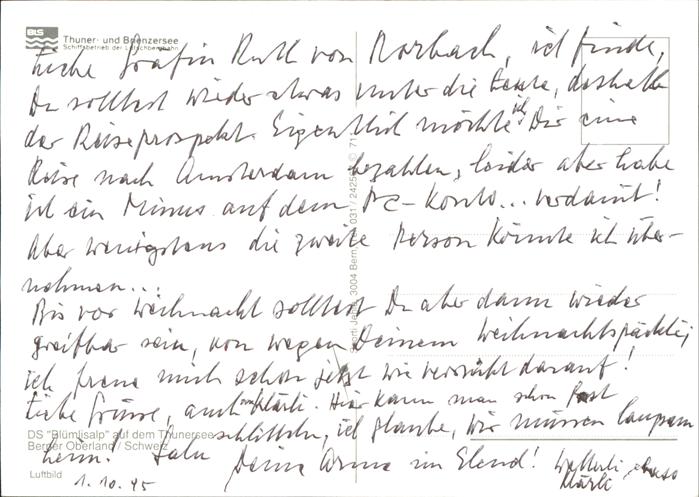 BLS
Thuner- und Brienzersee
Schiffsbetrieb der Lötschbergbahn
Liebe Gräfin Ruth von Rorbach, ich finde,
Du solltest wieder etwas unter die Leute, deshalb
der Reiseprospekt. Eigentlich möchte ich Dir eine
Reise nach Amsterdam bezahlen, leider aber habe
ich ein Minus auf dem PC-Konto... verdamt!
Aber wenigstens die zweite Person könnte ich über-
nehmen...
Bis vor Weihnacht solltest Du aber dann wieder
greifbar sein, von wegen Deinem Weihnachtspäckli,
ich freue mich schon jetzt wie verrückt darauf!
Liebe Grüsse, auch von Klärli. Hier kann man schon fast
schlitteln, ich glaube, wir müssen langsam
heim! Salu Deine Arme im Elend!
DS "Blümlisalp" auf dem Thunersee
Berner Oberland / Schweiz
Luftbild
1.10.95
3004 Bern
031/